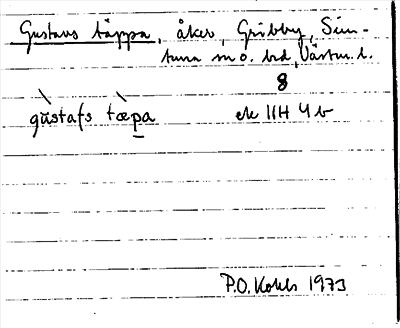 Gustavs täppa, åker, Gribby, Sim-
tuna sn o. hd, Västm. l.
8
gu̇stafs tæpa ek 11H 4b
P.O. Kohls 1973